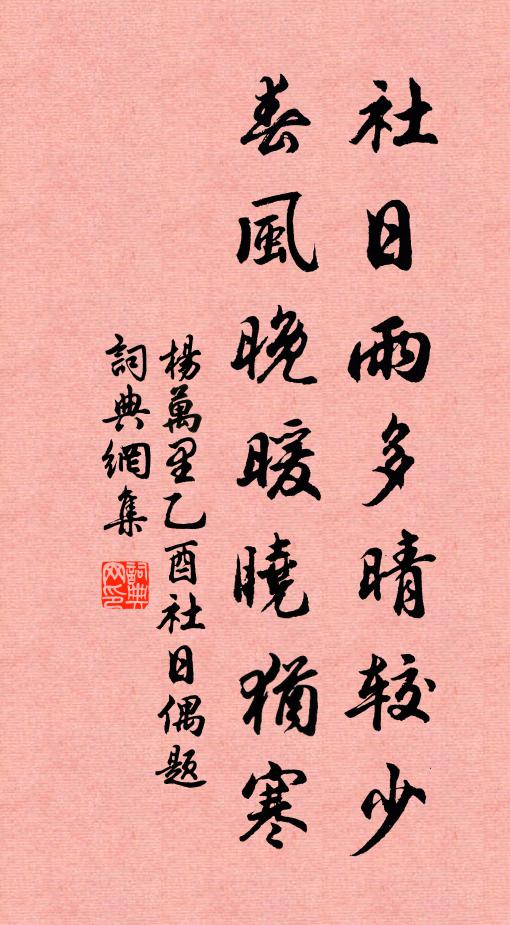 社日雨多晴较少
春風晚暖曉猶寒
楊萬里乙酉社日偶题
詞典網集
詞典
网印